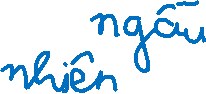 ngẫu
nhiên